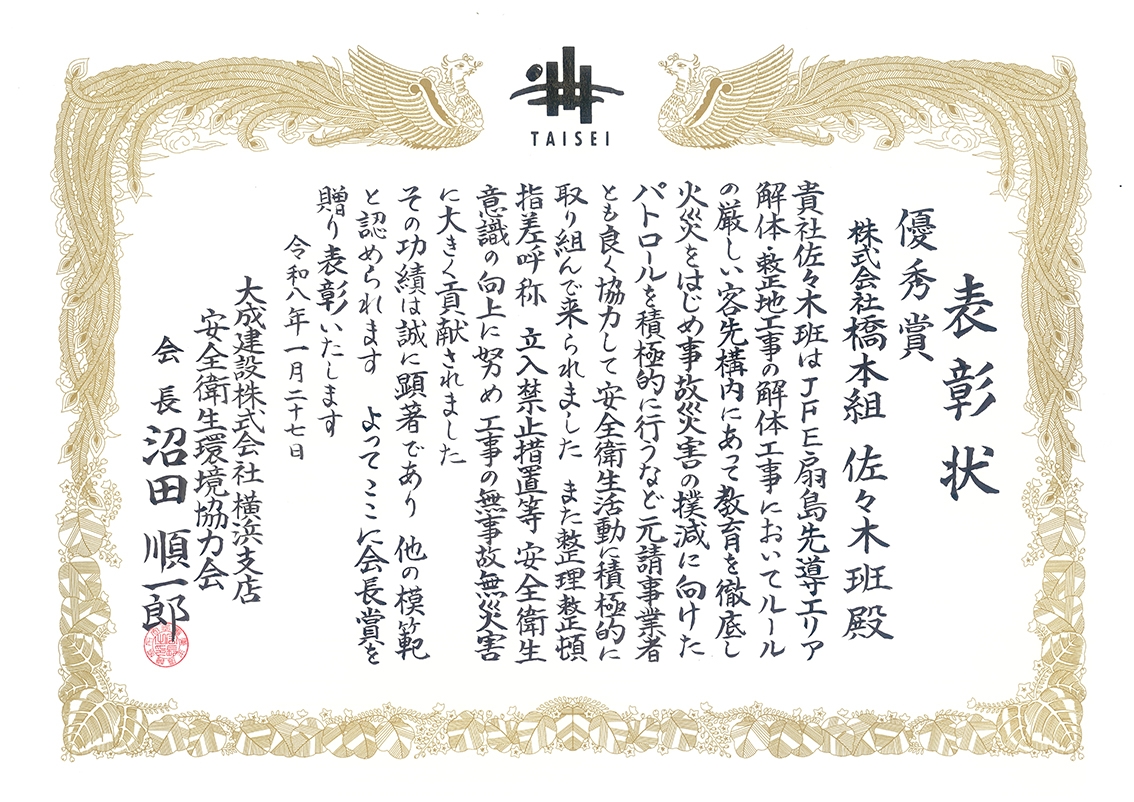 TAISEI
表彰状
優秀賞
株式会社橋本組 佐々木班殿
貴社佐々木班はJFE扇島先導エリア
解体・整地工事の解体工事においてルール
の厳しい客先構内にあって教育を徹底し
火災をはじめ事故災害の撲滅に向けた
パトロールを積極的に行うなど元請事業者
とも良く協力して安全衛生活動に積極的に
取り組んで来られました また整理整頓
指差呼称 立入禁止措置等 安全衛生
意識の向上に努め工事の無事故無災害
に大きく貢献されました
その功績は誠に顕著であり 他の模範
と認められます よってここに会長賞を
贈り表彰いたします
令和八年一月二十七日
大成建設株式会社横浜支店
安全衛生環境協力会
会長 沼田順一郎